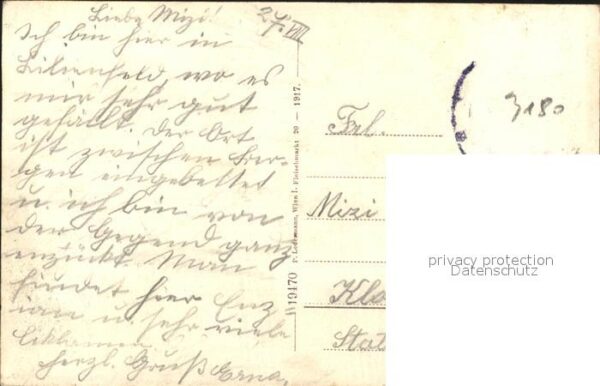 Liebe Mizi!
27/VIII
Ich bin hier in
Lilienfeld, wo es
mir sehr gut
gefällt. Der Ort
ist zwischen Ber-
gen eingebettet
u. ich bin von
der Gegend ganz
entzückt. Man
findet hier Enz
ian u. sehr viele
Ciklamen.
herzl. Gruß Erna.
119470 P. Ledermann, Wien I., Fleischmarkt 20 — 1917.
3180
Frl.
Mizi
Klo
Stat
privacy protection
Datenschutz